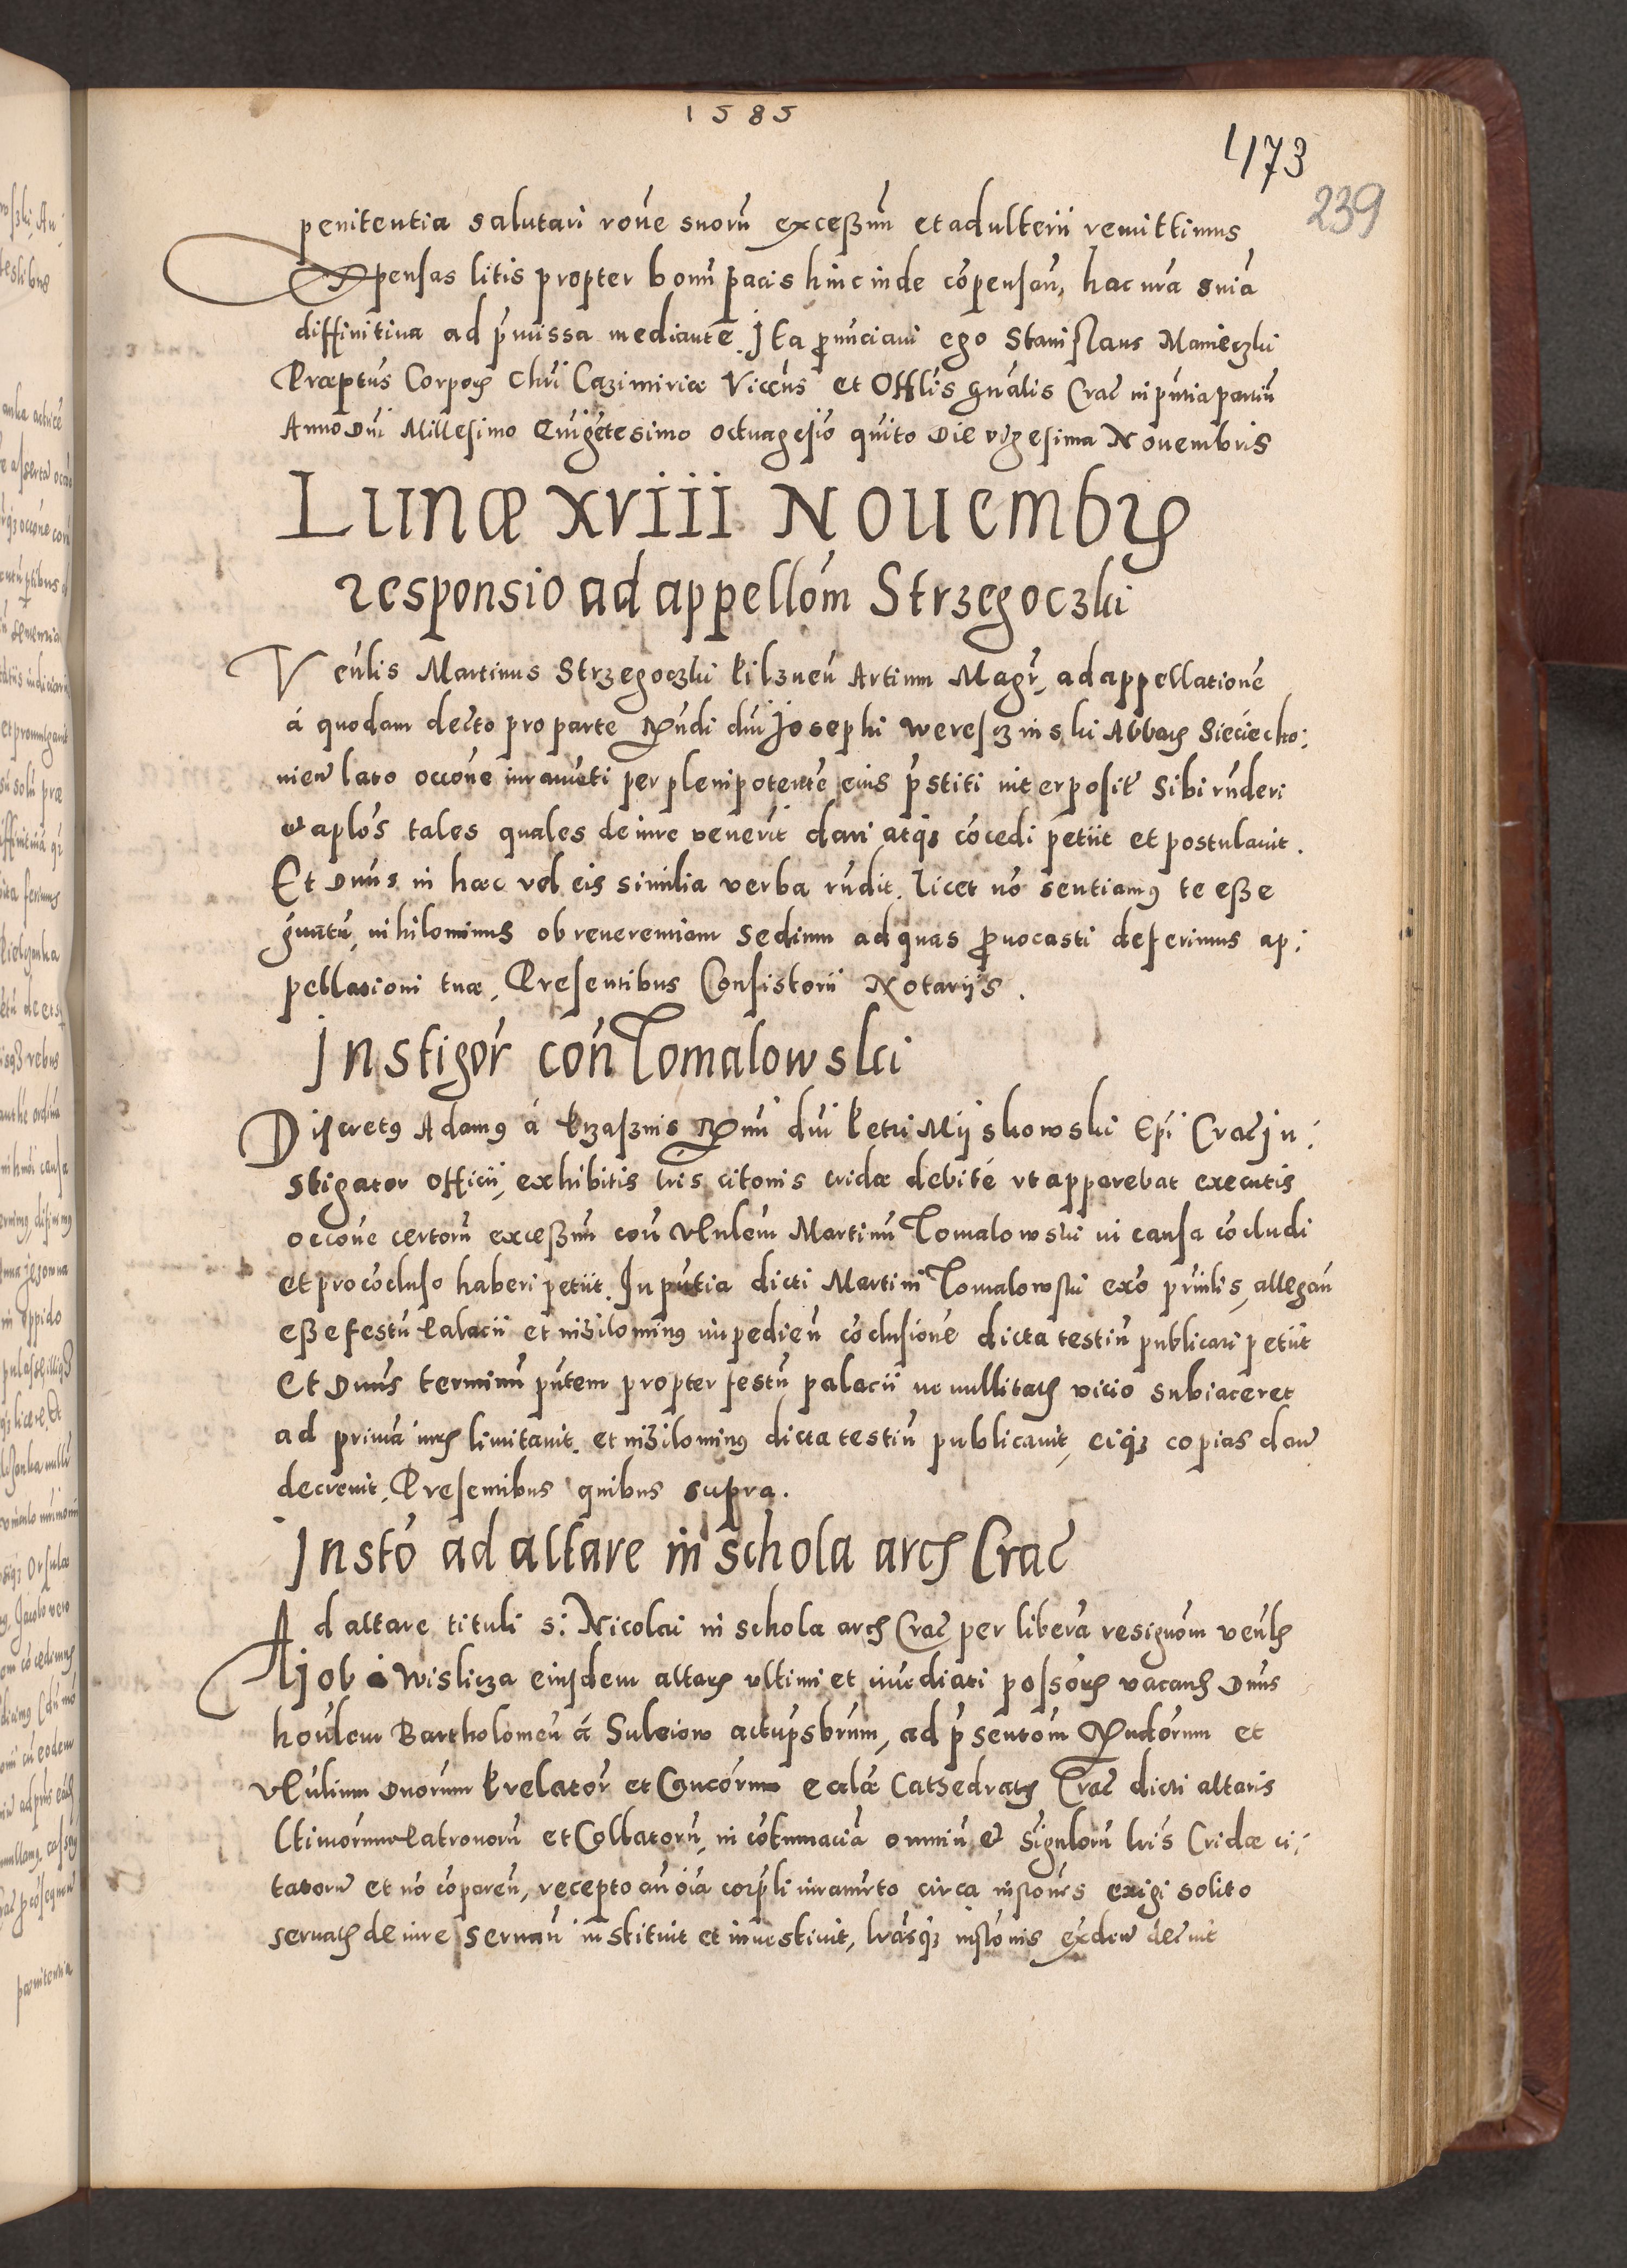 1585
173
239
penitentia salutari roñe suorũ exceßuũ et adulterii remittimus
Expensas litis propter bonũ pacis hinc inde cõpensañ, hac nrã sniã
diffinitiua ad p̃missa mediante. Ita p̱nunciaui ego Stanislaus Manieczki
Præptus Corporis Chri Cazimiriæ Viccũs et Offlis gnãlis Crac̃ in pñtia partiũ
Anno Dñi Millesimo Quigẽtesimo octuagesio quĩto Die vigesima Nouembris
Lunæ XVIII Nouembris
responsio ad appellõm Strzegoczki
Veñlis Martinus Strzegoczki Pilzneñ Artium Magr̃, ad appellationẽ
á quodam decto pro parte Rñdi dñi Josephi Weresczinski Abbatis Sieciecho:
uien̄ lato occone iuramẽti per plenipotentẽ eius p̃stiti interposit̃ sibi rñderi
et aplõs tales quales de iure venerit dari atq̃ cõcedi petiit et postulauit.
Et Dñus in hæc vel eis similia verba rñdit. licet nõ sentiamꝰ te eße
grauatũ, nihilominus ob reuerentiam Sedium ad quas p̱uocasti deferimus ap:
pellationi tuæ, Presentibus Consistorii Notariis.
Instigor̃ coñ Tomalowski
Discretꝰ Adamꝰ á Krzaßnis Rñi dñi Petri Mijskowski Epi Crac̃ In:
stigator Officii, exhibitis lris citonis cridæ debitè vt apparebat executis
occone certorũ exceßuũ coñ Vñlem Martinũ Tomalowski in causa cõcludi
et pro cõcluso haberi petiit. In pñtia dicti Martini Tomalowski excõ priñlis, allegañ
eße festũ Palacii et nihilominꝰ impedieñ cõclusionẽ dicta testiũ publicari petiit
Et Dñus terminũ pñtem propter festũ palacii ne nullitatis vicio subiaceret
ad primã iuris limitauit. et nihilominꝰ dicta testiũ publicauit, eiq̃ copias dan̄
decreuit, Presentibus quibus supra.
Insto ad altare in schola arcis Crac̃
Ad altare tituli S: Nicolai in schola arcis Crac̃ per liberã resignõm veñlis
Ijob á Wislicza eiusdem altaris vltimi et im̃ediati possõris vacantis Dñus
hoñlem Bartholomeũ á Suleiow actu psbrum, ad p̃sentõm Rndorum et
Vñlium Dnorum Prelator̃ et Cancõrum eccliæ Cathedralis Crac̃ dicti altaris
ltimorum Patronorũ et Collatorũ, in cõtumaciã omniũ et sĩgulorũ lris Cridæ ci:
tatorũ et nõ cõpareñ, recepto añ oĩa corpli iuramẽto circa instones exigi solito
seruatis de iure seruañ instituit et inuestiuit, lrasq̃ instonis exden̄ decreuit